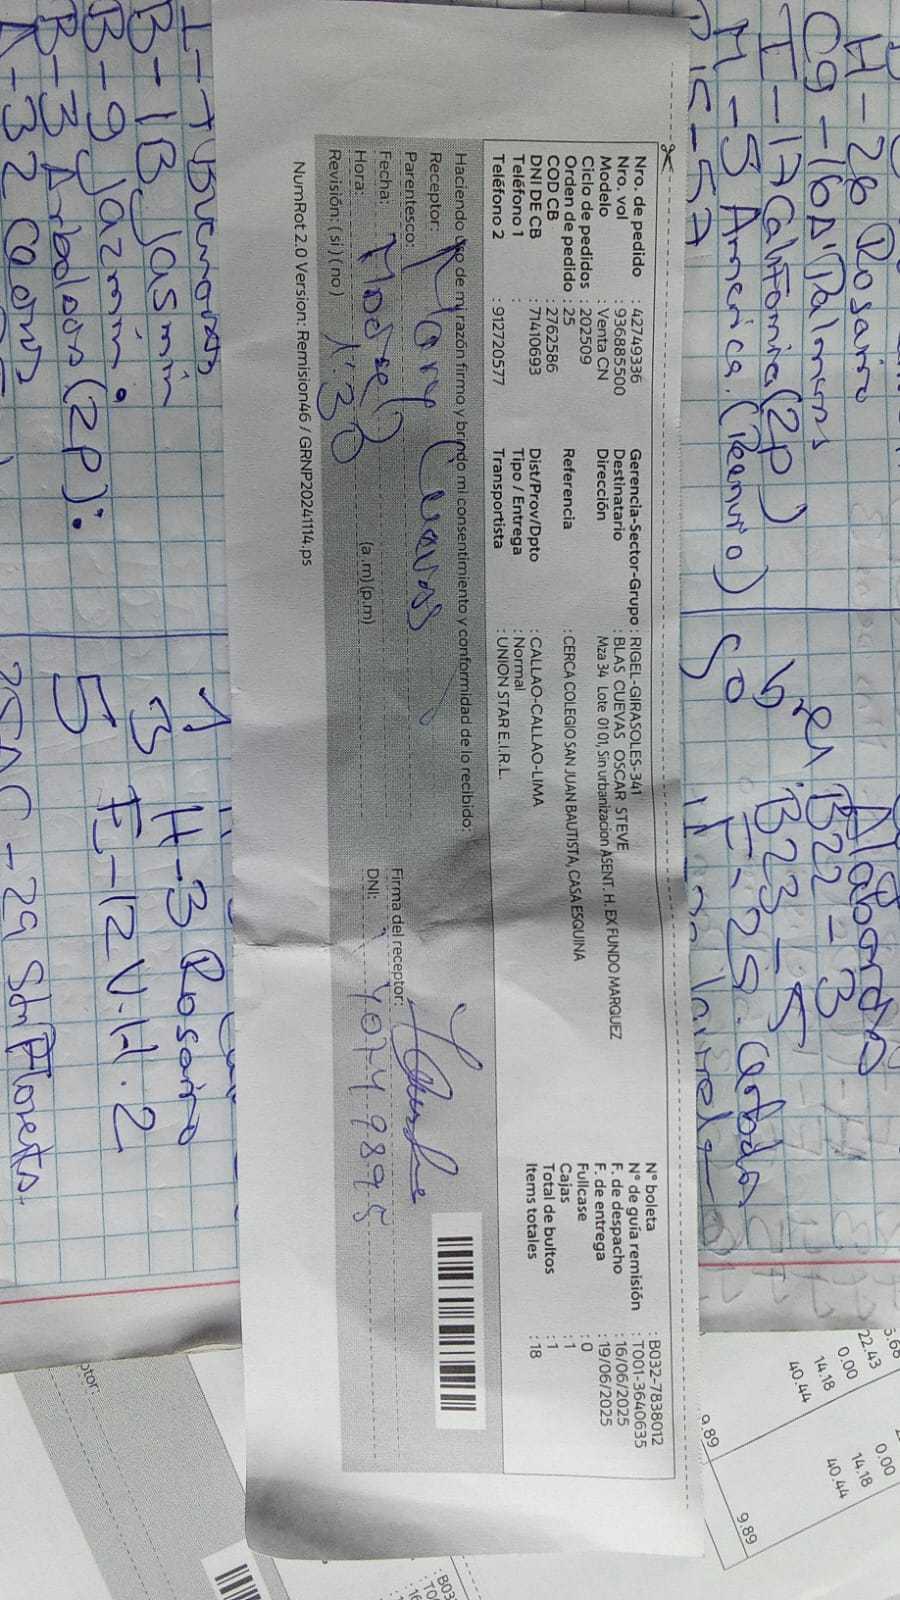 H-26 Rosario
C9-16 D'Palmeras
I-17 California (2p)
M-5 America. (Reenvio)
15-57
Alabordo
B22-3
B23-5
Nro. de pedido : 42749336
Nro. vol : 936885500
Modelo : Venta CN
Ciclo de pedidos : 202509
Orden de pedido : 25
COD CB : 2762586
DNI DE CB : 71410693
Teléfono 1 :
Teléfono 2 : 912720577
Gerencia-Sector-Grupo : RIGEL-GIRASOLES-341
Destinatario : BLAS CUEVAS OSCAR STEVE
Dirección Mza 34 Lote 01 01, Sin urbanizacion ASENT. H. EX FUNDO MARQUEZ
Referencia : CERCA COLEGIO SAN JUAN BAUTISTA, CASA ESQUINA
Dist/Prov/Dpto : CALLAO-CALLAO-LIMA
Tipo / Entrega : Normal
Transportista : UNION STAR E.I.R.L.
N° boleta : B032-7838012
N° de guía remisión : T001-3640635
F. de despacho : 16/06/2025
F. de entrega : 19/06/2025
Fullcase : 0
Cajas : 1
Total de bultos : 1
Items totales : 18
Haciendo uso de mi razón firmo y brindo mi consentimiento y conformidad de lo recibido:
Receptor: Mary Cuevas
Parentesco: Madre
Fecha:
Hora: 1:30 (a.m) (p.m)
Revisión: ( si ) ( no )
Firma del receptor:
DNI: 40749895
NumRot 2.0 Version: Remision46 / GRNP20241114.ps
B-1B Jasmin
B-9 Jazmin.
B-3 Arboledas (2p):
H-3 Rosario
E-12 V.H.2
5
22.43
0.00
14.18
40.44
9.89
0.00
14.18
40.44
9.89